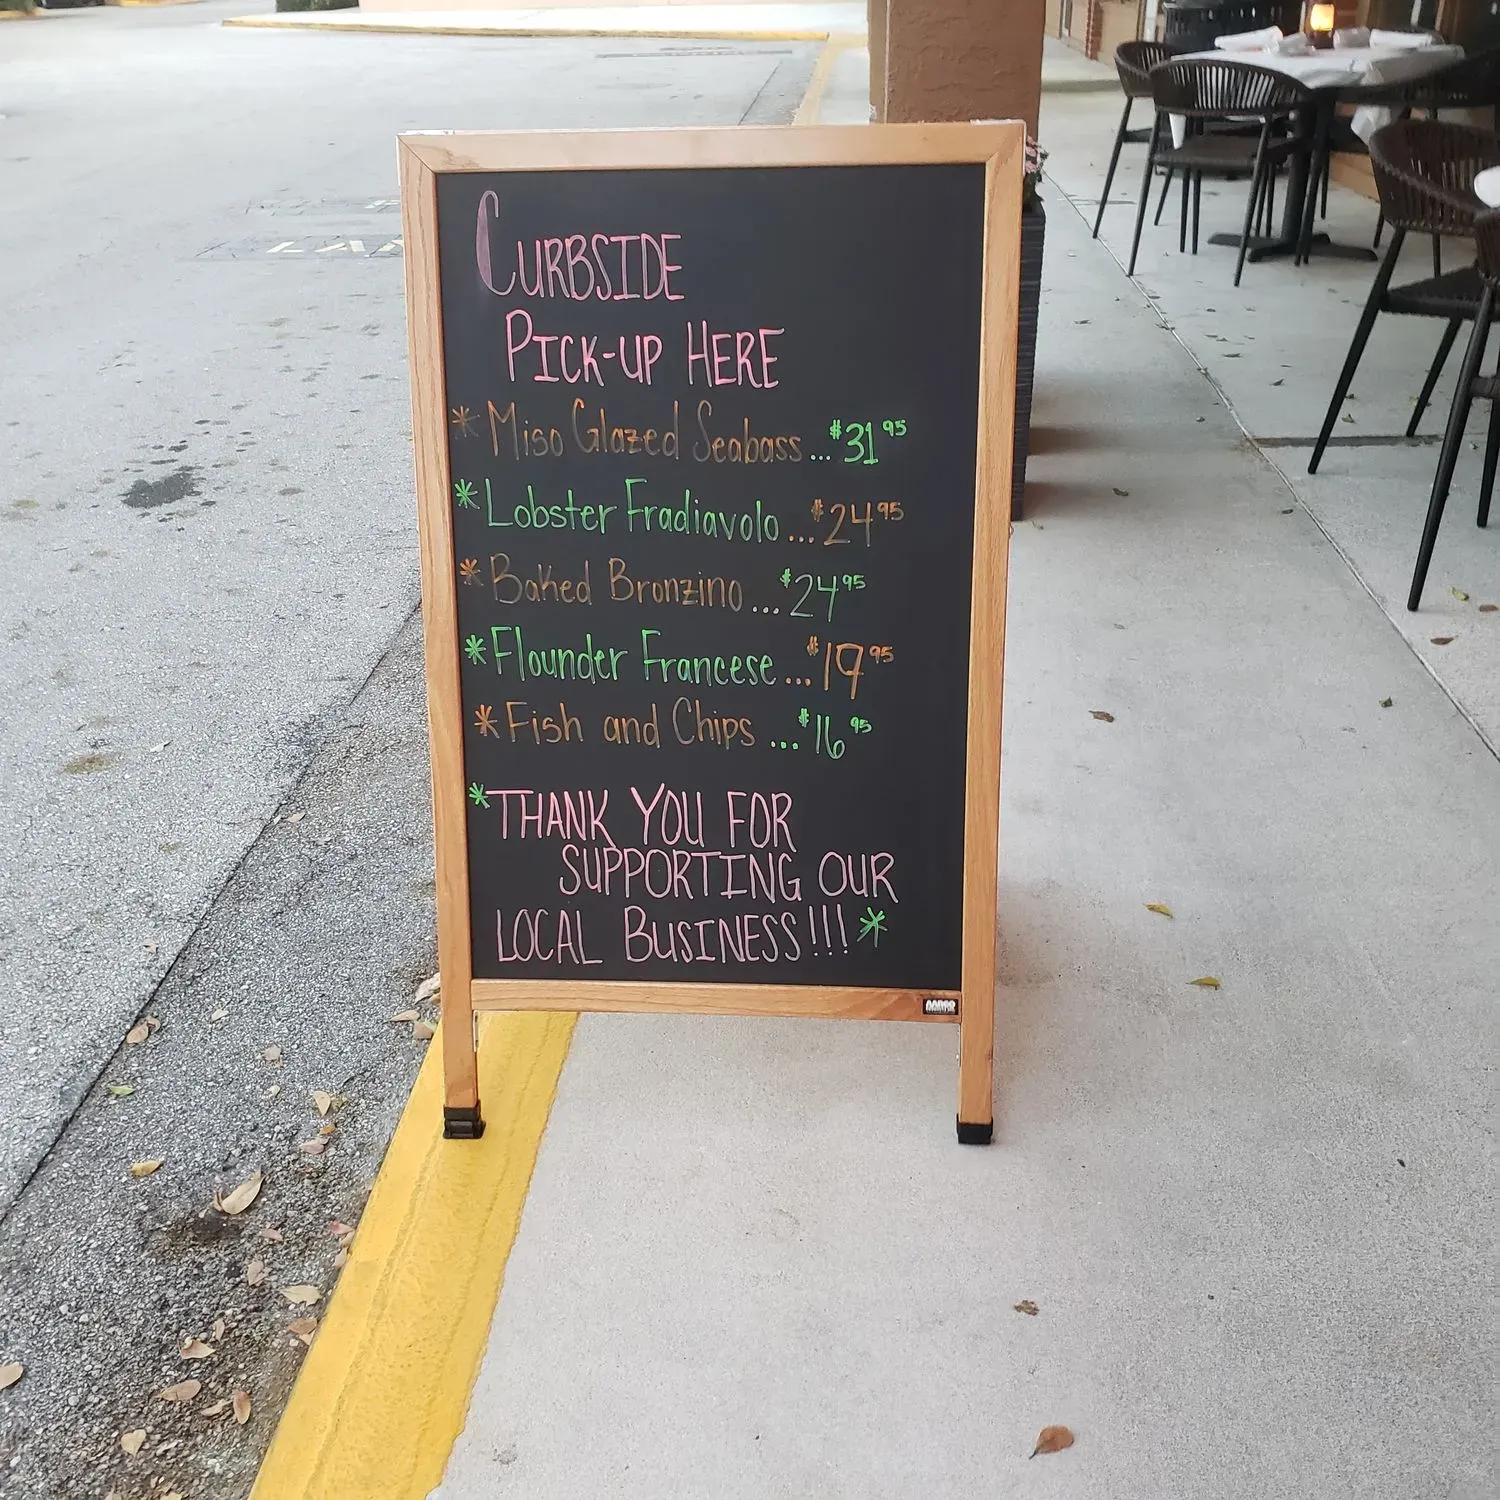 CURBSIDE
PICK-UP HERE
* Miso Glazed Seabass...$31 95
* Lobster Fradiavolo...$24 95
* Baked Bronzino...$24 95
* Flounder Francese...$19 95
* Fish and Chips...$16 95
*THANK YOU FOR
SUPPORTING OUR
LOCAL BUSINESS!!!*